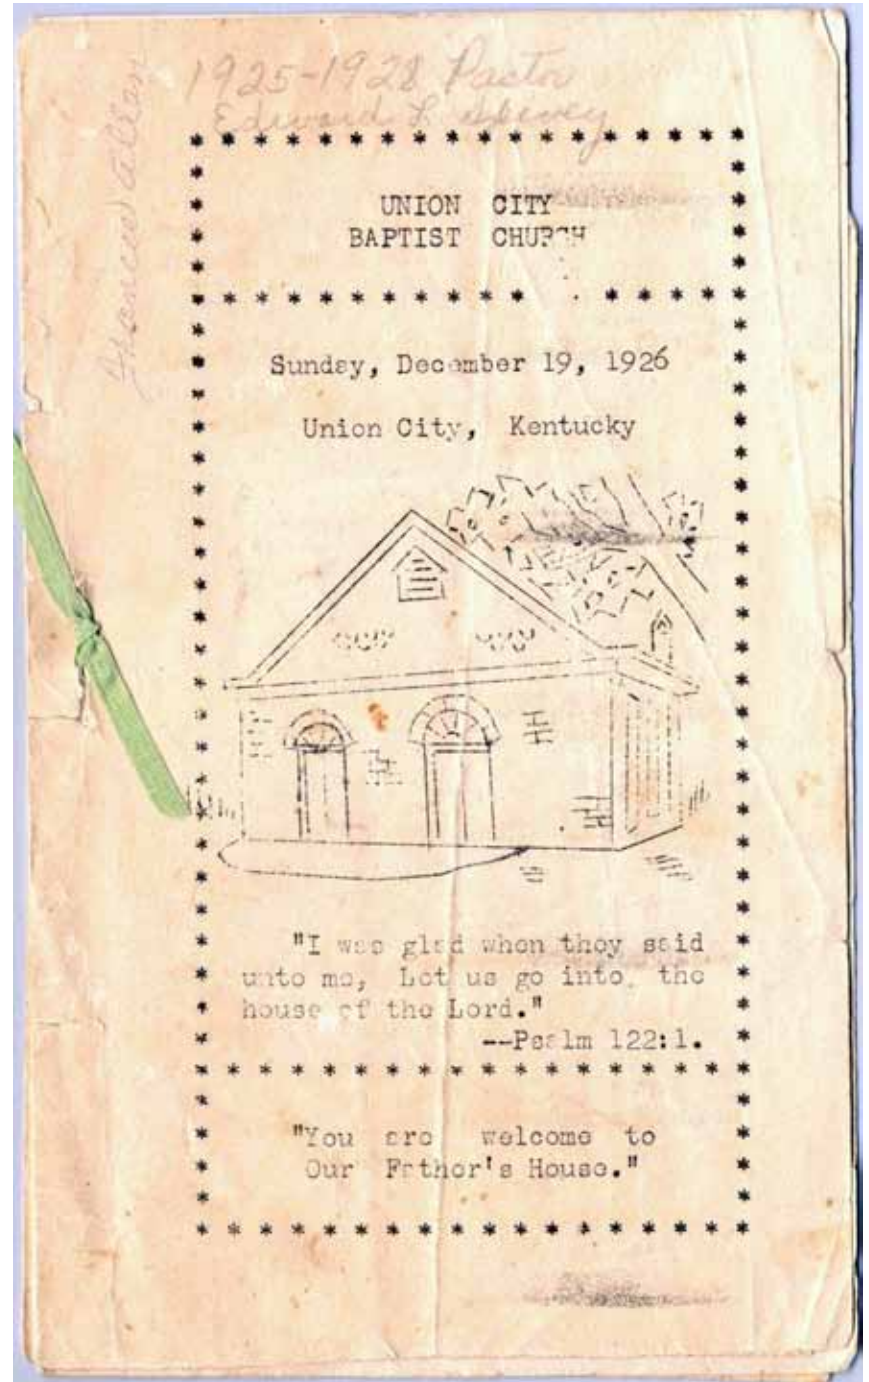 1925-1928 Pastor
Edward L
Frances Allen
UNION CITY
BAPTIST CHURCH
Sunday, December 19, 1926
Union City, Kentucky
"I was glad when they said
unto me, Let us go into the
house of the Lord."
--Psalm 122:1.
"You are welcome to
Our Father's House."